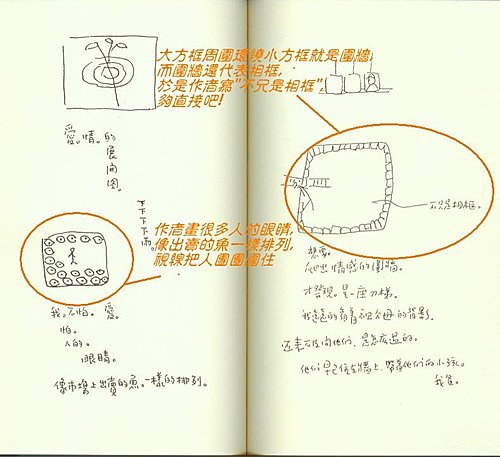 大方框周圍環繞小方框就是圍牆,
而圍牆還代表相框,
於是作者寫"不只是相框",
夠直接吧!
愛。情。的
展
開
圖。
下
下
下
下
雨。
作者畫很多人的眼睛,
像出賣的魚一樣排列,
視線把人團團圍住
我。不怕。愛。
怕。
人的。
眼睛。
像市場上出賣的魚。一樣的排列。
不只是相框。
想要
爬出情感的圍牆。
才發現。是一座刀梯。
我遠遠的看著祖父母的背影
還來不及問他們。是怎麼過的。
他們早已住在牆上.帶著他們的小孩。
我爸。